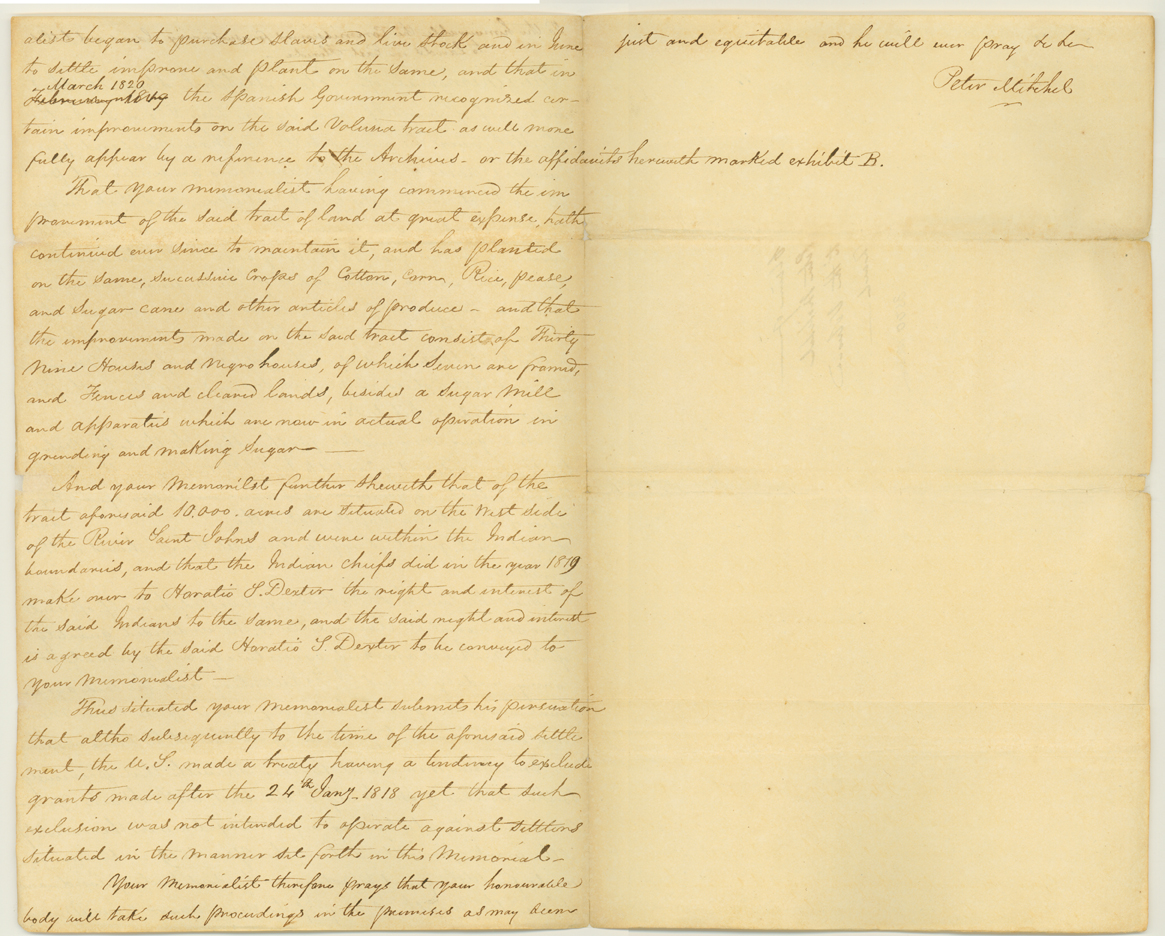 alist began to purchase slaves and live stock and in June
to settle improve and plant on the same, and that in
March 1820
February 1819 the Spanish Government recognized cer-
tain improvements on the said Volusia tract as will more
fully appear by a reference to the Archives - or the affidavits herewith marked exhibit B.
That your memorialist having commenced the im
provement of the said tract of land at great expense, hath
continued ever since to maintain it, and has planted
on the same, sucessive Crops of Cotton, Corn, Rice, pease,
and Sugar cane and other articles of produce - and that
the improvements made on the said tract consist of Thirty
Nine Houses and Negro houses, of which Seven are framed,
and Fences and cleared lands, besides a Sugar Mill
and apparatus which are now in actual operation in
grinding and making Sugar —
And your Memorilst further sheweth that of the
tract aforesaid 10.000. acres are situated on the West side
of the River Saint Johns and were within the Indian
boundaries, and that the Indian chiefs did in the year 1819
make over to Horatio S. Dexter the right and interest of
the said Indians to the same, and the said right and interest
is agreed by the said Horatio S. Dexter to be conveyed to
your Memorialist —
Thus situated your Memorialist submits his persuation
that altho subsequently to the time of the aforesaid settle
ment, the U. S. made a treaty having a tendency to exclude
grants made after the 24th Jany. 1818 yet that such
exclusion was not intended to operate against settlers
situated in the manner set forth in this Memorial —
Your Memorialist therefore prays that your honourable
body will take such proceedings in the premises as may seem
just and equitable and he will ever pray &c
Peter Mitchel